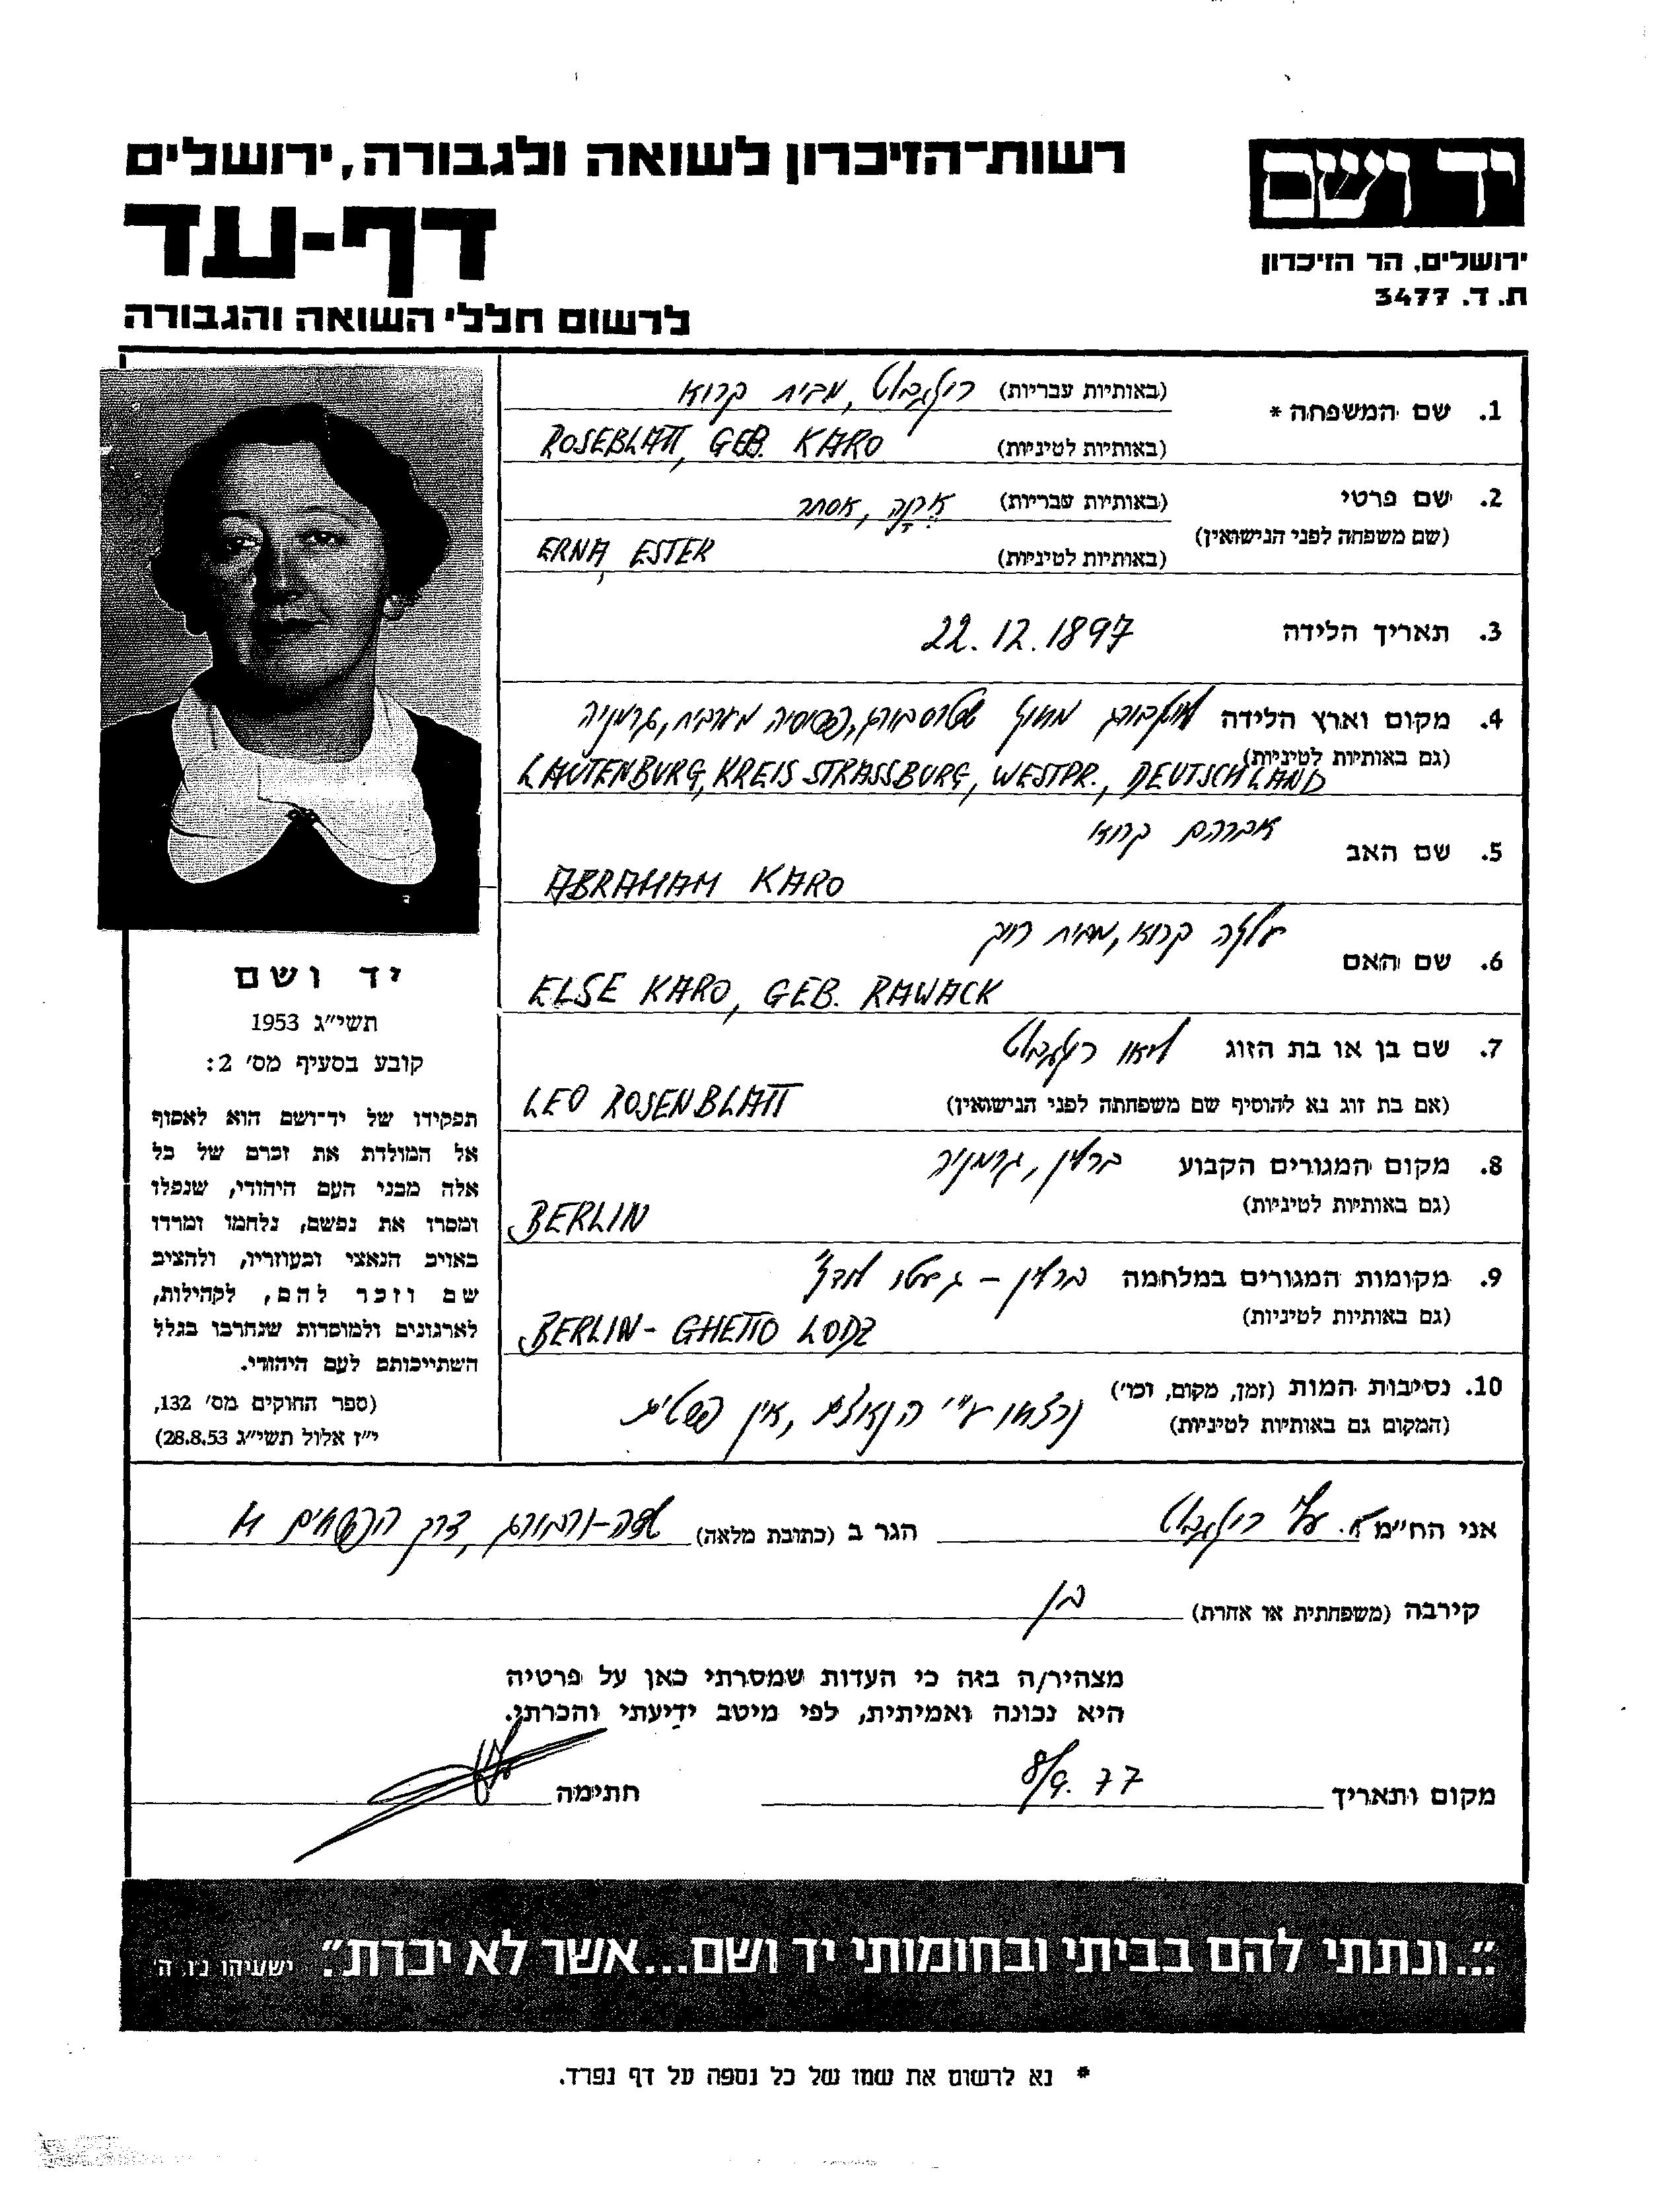 רשות־הזיכרון לשואה ולגבורה, ירושלים
דף-עד
לרשום חללי השואה והגבורה
יד ושם
ירושלים, הר הזיכרון
ת. ד. 3477
1. שם המשפחה * (באותיות עבריות) רוזנבלט, מבית קרוא
(באותיות לטיניות) ROSEBLATT, GEB. KARO
2. שם פרטי (באותיות עבריות) ארנה, אסתר
(שם משפחה לפני הנישואין)
(באותיות לטיניות) ERNA, ESTER
3. תאריך הלידה 22.12.1897
4. מקום וארץ הלידה לויטנבורג מחוז שטרסבורג, פרוסיה מערבית, גרמניה
(גם באותיות לטיניות) LAUTENBURG, KREIS STRASSBURG, WESTPR., DEUTSCHLAND
5. שם האב אברהם קרוא
ABRAHAM KARO
6. שם האם קרוא, מבית
ELSE KARO, GEB. RAWACK
7. שם בן או בת הזוג ליאו רוזנבלט
(אם בת זוג נא להוסיף שם משפחתה לפני הנישואין) LEO ROSENBLATT
8. מקום המגורים הקבוע ברלין, גרמניה
(גם באותיות לטיניות) BERLIN
9. מקומות המגורים במלחמה ברלין - גיטו לודז'
(גם באותיות לטיניות) BERLIN - GHETTO LODZ
10. נסיבות המות (זמן, מקום, וכו') נרצחו ע"י הנאצים, אין פרטים
(המקום גם באותיות לטיניות)
יד ושם
תשי"ג 1953
קובע בסעיף מס' 2:
תפקידו של יד־ושם הוא לאסוף
אל המולדת את זכרם של כל
אלה מבני העם היהודי, שנפלו
ומסרו את נפשם, נלחמו ומרדו
באויב הנאצי ובעוזריו, ולהציב
שם וזכר להם, לקהילות,
לארגונים ולמוסדות שנחרבו בגלל
השתייכותם לעם היהודי.
(ספר החוקים מס' 132,
י"ז אלול תשי"ג 28.8.53)
אני הח"מ רוזנבלט הגר ב (כתובת מלאה) שדה-ורבורג, דרך
קירבה (משפחתית או אחרת) בן
מצהיר/ה בזה כי העדות שמסרתי כאן על פרטיה
היא נכונה ואמיתית, לפי מיטב ידיעתי והכרתי.
מקום ותאריך 8/9.77 חתימה
"...ונתתי להם בביתי ובחומותי יד ושם...אשר לא יכרת". ישעיהו נ"ו, ה'
* נא לרשום את שמו של כל נספה על דף נפרד.